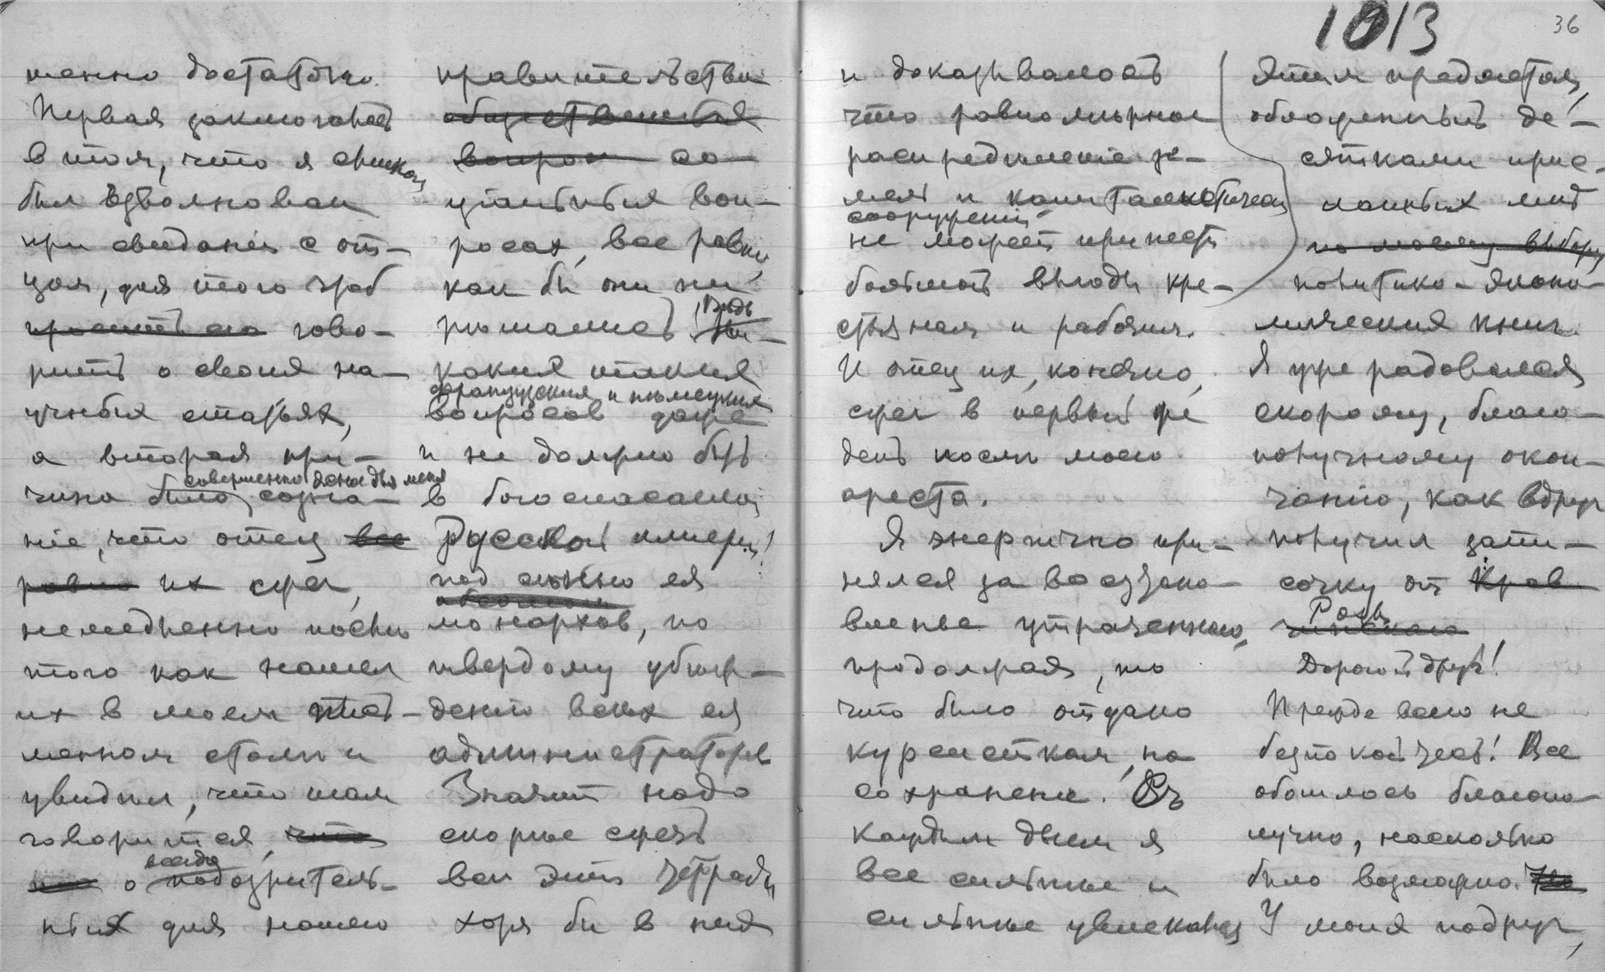 1013
36
менно достаточно.
Первая заключалась
в том, что я слишком
был взволнован
при свидании с от-
цом, для того чтоб
просить его гово-
рить о своих на-
учных статьях,
а вторая при-
чина было совершенно ясное для меня созна-
ние, что отец все
равно их сжег,
немедленно после
того как нашел
их в моем пись-
менном столе и
увидел, что там
говорится, что
о всегда подозритель-
ных для нашего
правительства
общественных
вопрос со-
циальных воп-
росах, все равно,
как бы они ни
решались. Ведь ни-
каких таких
французских и немецких
вопросов даже
и не должно быть
в богоспасаемой
Русской империи!
под сенью ея
монархов, по
твердому убеж-
дению всех ея
администраторов
Значит надо
скорее сжечь
все эти тетради,
хотя бы в них
и доказывалось
что равномерное
распределение зе-
мель и капиталистических
сооружений
не может принести
большой выгоды кре-
стьянам и рабочим.
И отец их, конечно,
сжег в первый же
день после моего
ареста.
Я энергично при-
нялся за возстано-
вленье утраченного,
продолжая, то
что было отдано
курсисткам, на
сохранение. Съ
каждым днем я
все сильнее и
сильнее увлекался
этим предметом,
обложенный де-
сятками прис-
ланных мне
по моему выбору
политико-эконо-
мических книг.
Я уже радовался
скорому, благо-
получному окон-
чанию, как вдруг
получил запи-
сочку от
Дорогой друг!
Прежде всего не
безпокойтесь! Все
обошлось благопо-
лучно, насколько
было возможно.
У моих подруг,